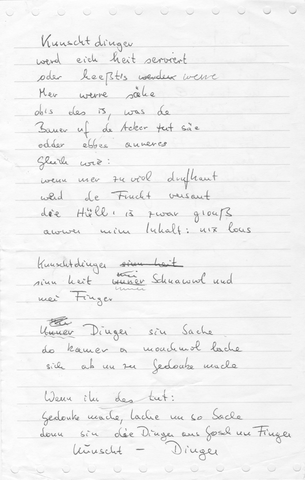 Kunschtdinger
werd eich heit serviert
oder heeßt's werden werre
Mer werre sähe
obs des is, was de
Bauer uf de Acker tut säe
odder ebbes anneres
Gleich wie:
wenn mer zu viel druffhaut
werd de Frucht versaut
die Hüll' is zwar grouß
awwer mim Inhalt: nix lous
Kunschtdinger sinn heit
sinn heit unner Schnawwl und
mei Finger
Unner Dinger sin Sache
do kamer a monchmol lache
sich ab un zu Gedonke mache
Wenn ihr des tut:
Gedonke mache, lache un so Sache
donn sin die Dinger aus Gosch un Finger
Kunscht - Dinger